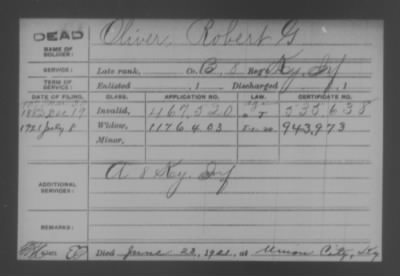 DEAD
Oliver, Robert G
NAME OF SOLDIER:
SERVICE: Late rank, Co. B, 8 Reg't Ky. Inf
TERM OF SERVICE: Enlisted , 1 Discharged , 1
DATE OF FILING. CLASS. APPLICATION NO. LAW. CERTIFICATE NO.
Invalid, 467,520
1921 July 8 Widow, 1176403 943,973
Minor,
ADDITIONAL SERVICES: A 8 Ky. Inf
REMARKS:
Died June 23, 1921, at Union City, Ky